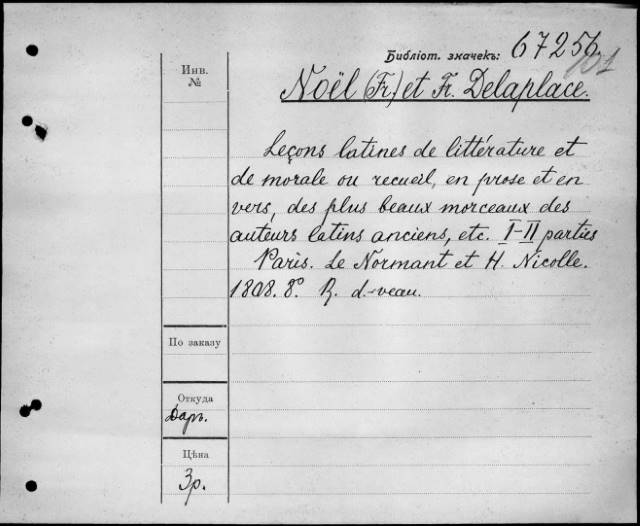 Библіот. значекъ: 67256
101
Инв.
№
Noël (Fr.) et Fr. Delaplace.
Leçons latines de littérature et
de morale ou recueil, en prose et en
vers, des plus beaux morceaux des
auteurs latins anciens, etc. I-II parties
Paris. Le Normant et H. Nicolle.
1808. 8°. R. d.-veau.
По заказу
Откуда
Даръ.
Цѣна
3р.